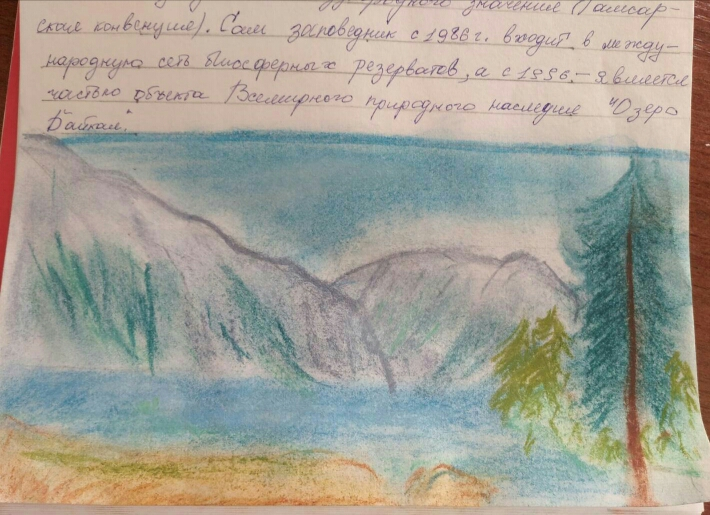 значение (Рамсар-
ская конвенция). Сам заповедник с 1986 г. входит в между-
народную сеть биосферных резерватов, а с 1996 - является
частью объекта Всемирного природного наследия "Озеро
Байкал".